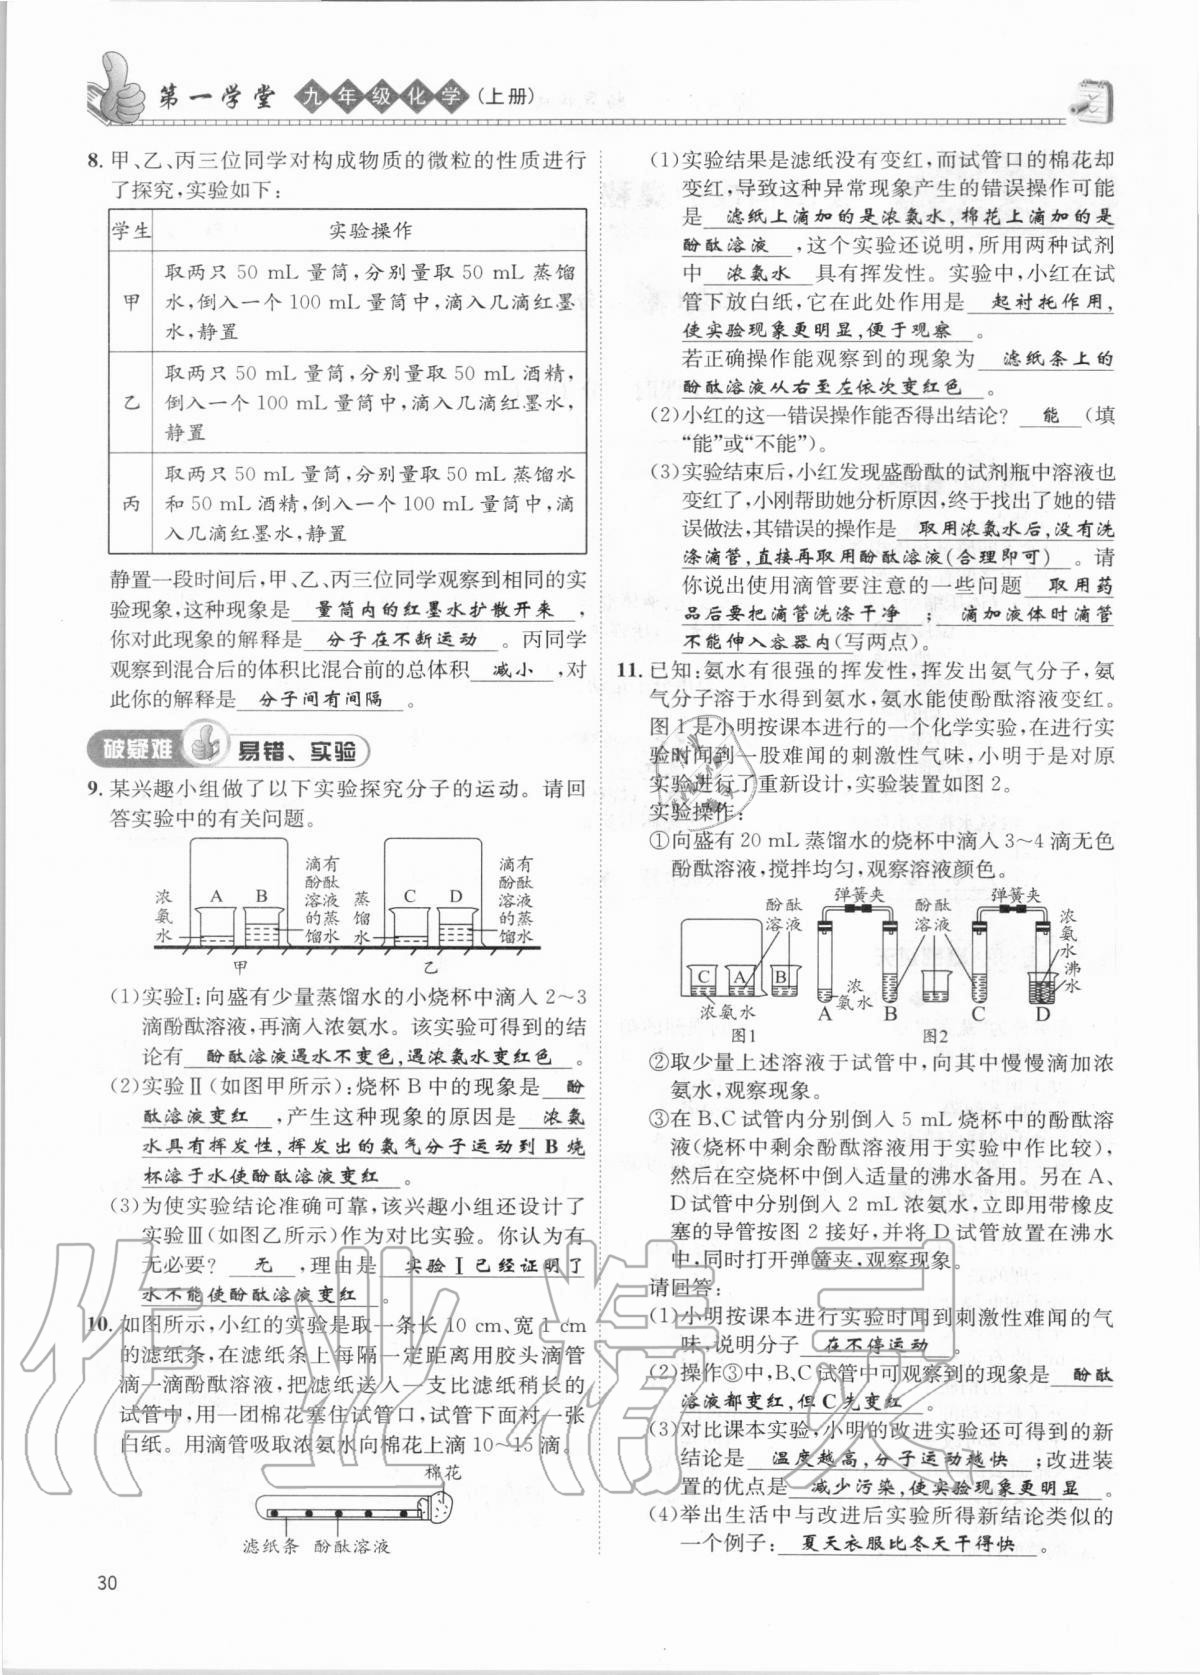 第一学堂 九年级化学(上册)
8. 甲、乙、丙三位同学对构成物质的微粒的性质进行
了探究,实验如下:
学生 实验操作
甲
取两只 50 mL 量筒,分别量取 50 mL 蒸馏
水,倒入一个 100 mL 量筒中,滴入几滴红墨
水,静置
乙
取两只 50 mL 量筒,分别量取 50 mL 酒精,
倒入一个 100 mL 量筒中,滴入几滴红墨水,
静置
丙
取两只 50 mL 量筒,分别量取 50 mL 蒸馏水
和 50 mL 酒精,倒入一个 100 mL 量筒中,滴
入几滴红墨水,静置
静置一段时间后,甲、乙、丙三位同学观察到相同的实
验现象,这种现象是 量筒内的红墨水扩散开来 ,
你对此现象的解释是 分子在不断运动 。丙同学
观察到混合后的体积比混合前的总体积 减小 ,对
此你的解释是 分子间有间隔 。
破疑难 易错、实验
9. 某兴趣小组做了以下实验探究分子的运动。请回
答实验中的有关问题。
浓氨水 A B 滴有酚酞溶液的蒸馏水 蒸馏水 C D 滴有酚酞溶液的蒸馏水
甲 乙
(1)实验Ⅰ:向盛有少量蒸馏水的小烧杯中滴入 2~3
滴酚酞溶液,再滴入浓氨水。该实验可得到的结
论有 酚酞溶液遇水不变色,遇浓氨水变红色 。
(2)实验Ⅱ(如图甲所示):烧杯 B 中的现象是 酚
酞溶液变红 ,产生这种现象的原因是 浓氨
水具有挥发性,挥发出的氨气分子运动到 B 烧
杯溶于水使酚酞溶液变红 。
(3)为使实验结论准确可靠,该兴趣小组还设计了
实验Ⅲ(如图乙所示)作为对比实验。你认为有
无必要? 无 ,理由是 实验Ⅰ已经证明了
水不能使酚酞溶液变红 。
10. 如图所示,小红的实验是取一条长 10 cm、宽 1 cm
的滤纸条,在滤纸条上每隔一定距离用胶头滴管
滴一滴酚酞溶液,把滤纸送入一支比滤纸稍长的
试管中,用一团棉花塞住试管口,试管下面衬一张
白纸。用滴管吸取浓氨水向棉花上滴 10~15 滴。
棉花
滤纸条 酚酞溶液
30
(1)实验结果是滤纸没有变红,而试管口的棉花却
变红,导致这种异常现象产生的错误操作可能
是 滤纸上滴加的是浓氨水,棉花上滴加的是
酚酞溶液 ,这个实验还说明,所用两种试剂
中 浓氨水 具有挥发性。实验中,小红在试
管下放白纸,它在此处作用是 起衬托作用,
使实验现象更明显,便于观察 。
若正确操作能观察到的现象为 滤纸条上的
酚酞溶液从右至左依次变红色 。
(2)小红的这一错误操作能否得出结论? 能 (填
“能”或“不能”)。
(3)实验结束后,小红发现盛酚酞的试剂瓶中溶液也
变红了,小刚帮助她分析原因,终于找出了她的错
误做法,其错误的操作是 取用浓氨水后,没有洗
涤滴管,直接再取用酚酞溶液(合理即可) 。请
你说出使用滴管要注意的一些问题 取用药
品后要把滴管洗涤干净 ; 滴加液体时滴管
不能伸入容器内(写两点)。
11. 已知:氨水有很强的挥发性,挥发出氨气分子,氨
气分子溶于水得到氨水,氨水能使酚酞溶液变红。
图 1 是小明按课本进行的一个化学实验,在进行实
验时闻到一股难闻的刺激性气味,小明于是对原
实验进行了重新设计,实验装置如图 2。
实验操作:
①向盛有 20 mL 蒸馏水的烧杯中滴入 3~4 滴无色
酚酞溶液,搅拌均匀,观察溶液颜色。
酚酞溶液 C A B 浓氨水 图1
弹簧夹 酚酞溶液 弹簧夹 浓氨水 沸水 浓氨水
A B C D
图2
②取少量上述溶液于试管中,向其中慢慢滴加浓
氨水,观察现象。
③在 B、C 试管内分别倒入 5 mL 烧杯中的酚酞溶
液(烧杯中剩余酚酞溶液用于实验中作比较),
然后在空烧杯中倒入适量的沸水备用。另在 A、
D 试管中分别倒入 2 mL 浓氨水,立即用带橡皮
塞的导管按图 2 接好,并将 D 试管放置在沸水
中,同时打开弹簧夹,观察现象。
请回答:
(1)小明按课本进行实验时闻到刺激性难闻的气
味,说明分子 在不停运动 。
(2)操作③中,B、C 试管中可观察到的现象是 酚酞
溶液都变红,但 C 先变红 。
(3)对比课本实验,小明的改进实验还可得到的新
结论是 温度越高,分子运动越快 ;改进装
置的优点是 减少污染,使实验现象更明显 。
(4)举出生活中与改进后实验所得新结论类似的
一个例子: 夏天衣服比冬天干得快 。
作业精灵